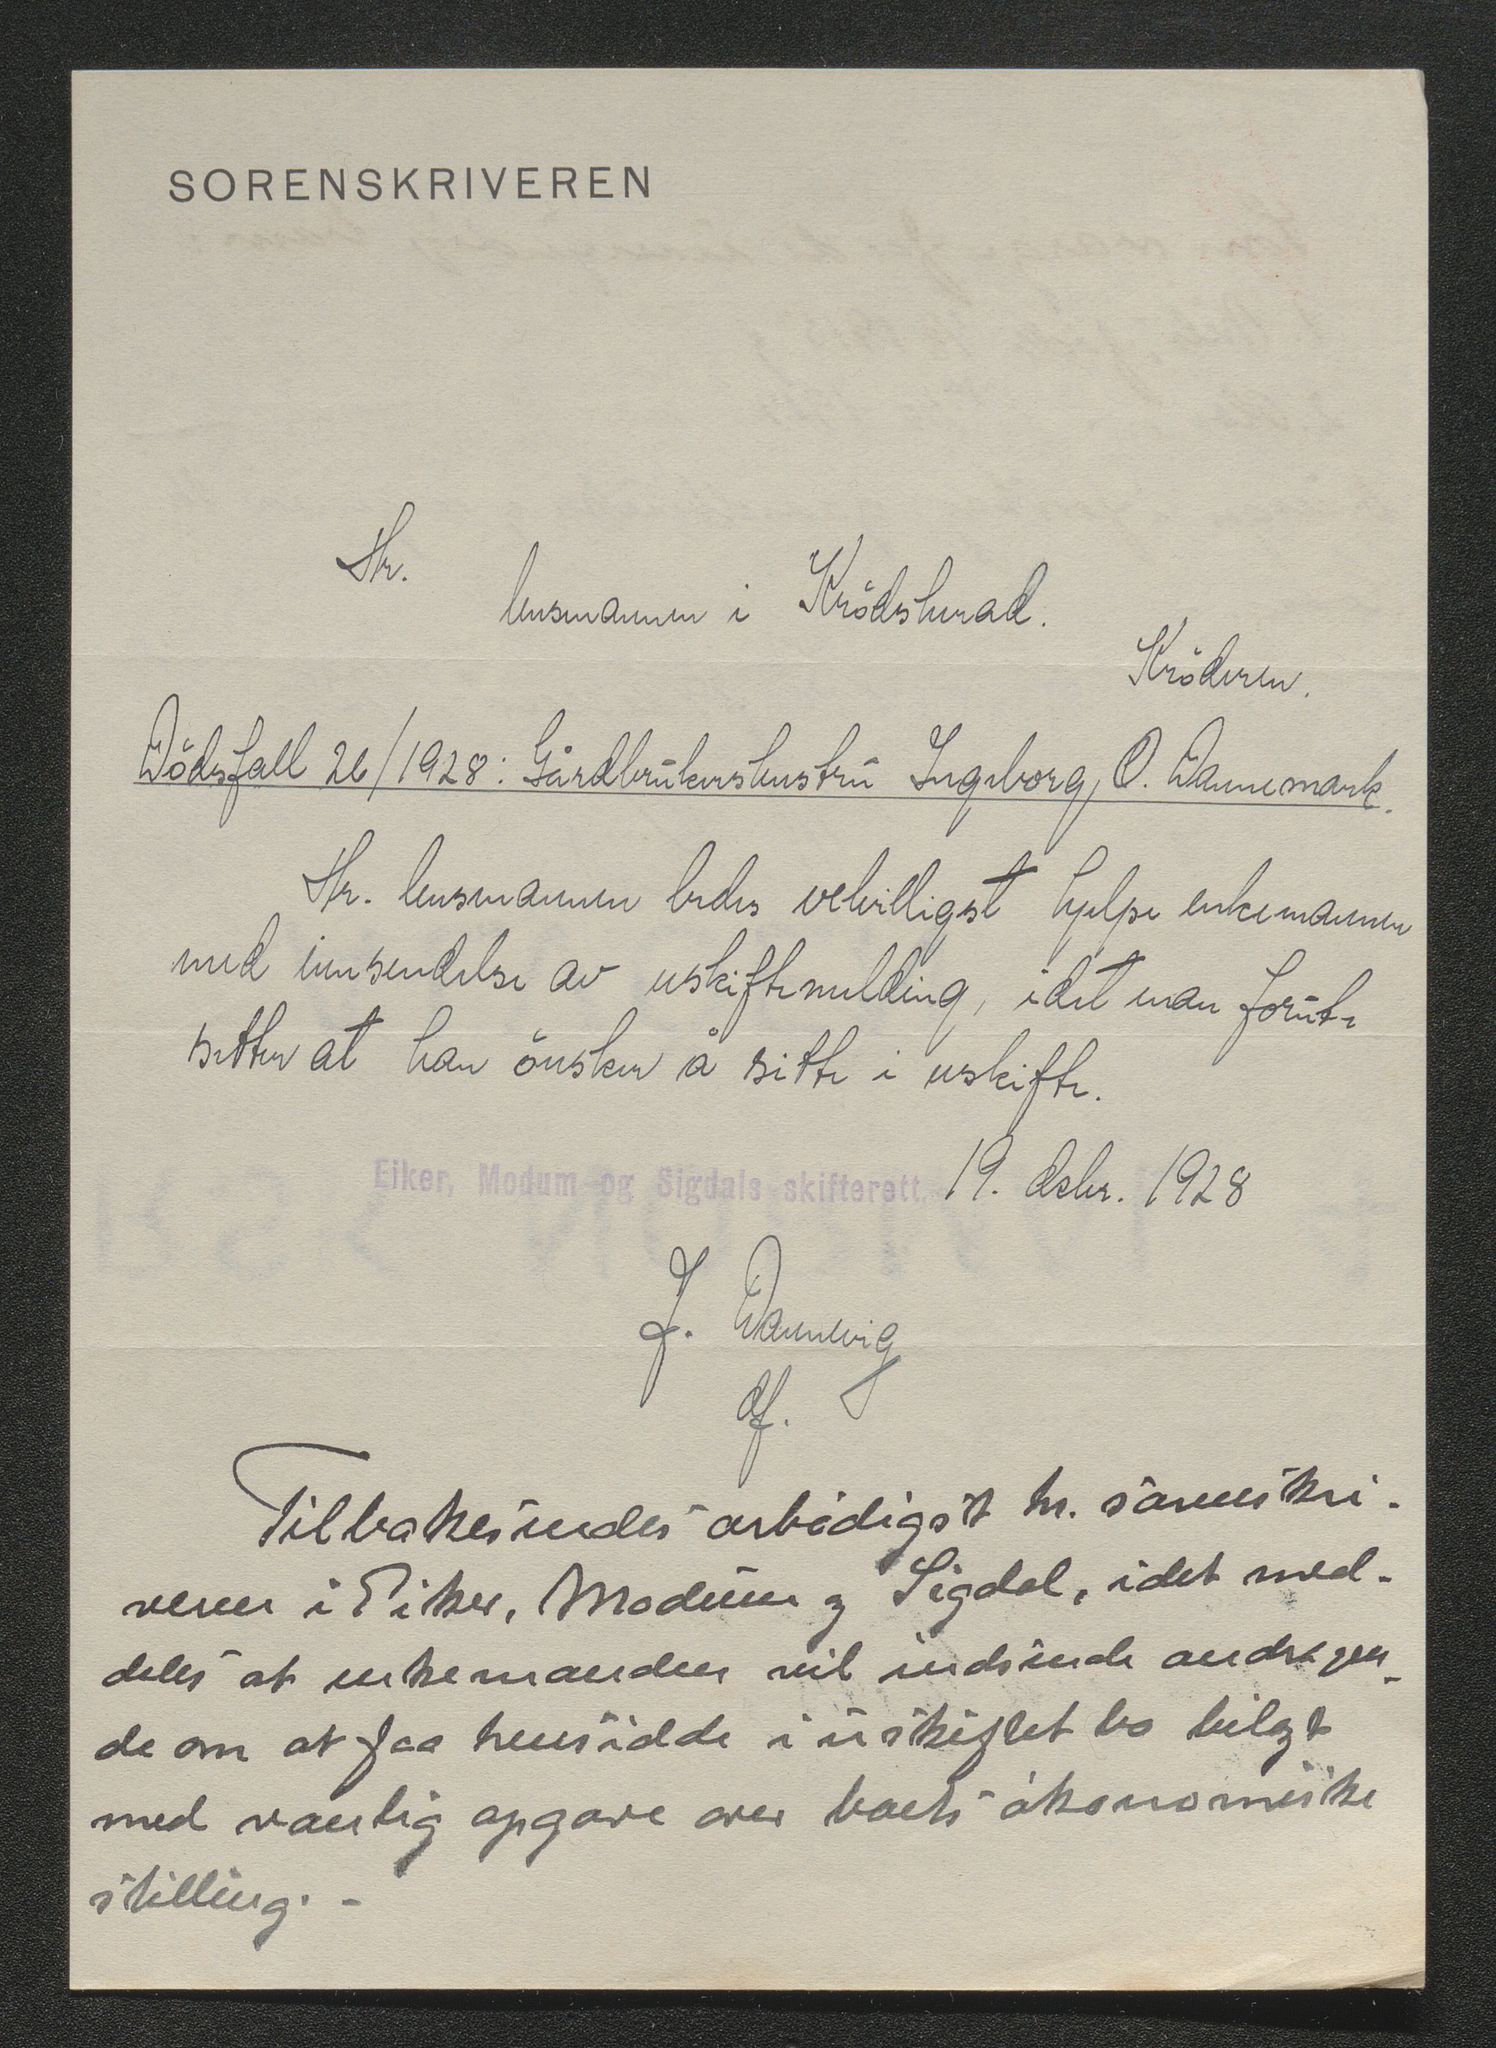 SORENSKRIVEREN
Hr.
lensmannen i Krödsherad.
Kröderen.
Dödsfall 26/1928: Gårdbrukerhustru Ingeborg O. Dannemark.
Hr. lensmannen bedes velvilligst hjelpe enkemannen
med innsendelse av uskiftemelding, idet man forut-
setter at han önsker å sitte i uskifte.
Eiker, Modum og Sigdals skifterett, 19. desbr. 1928
J. Dannevig
df.
Tilbakesendes ærbødigst hr. sorenskri-
veren i Eiker, Modum og Sigdal, idet med-
deles at enkemanden vil indsende andragen-
de om at faa hensidde i uskiftet bo bilagt
med vanlig opgave over boets økonomiske
stilling. -